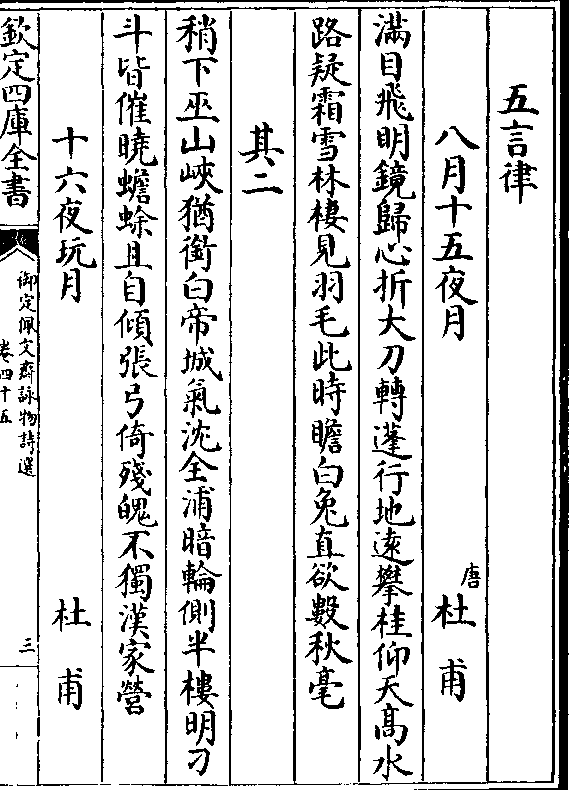 五言律
八月十五夜月 唐杜甫
滿目飛明鏡歸心折大刀轉蓬行地遠攀桂仰天髙水
路疑霜雪林棲見羽毛此時瞻白兔直欲數秋毫
其二
稍下巫山峽猶銜白帝城氣沈全浦暗輪側半樓明刁
斗皆催曉蟾蜍且自傾張弓倚殘魄不獨漢家營
十六夜玩月 杜甫
欽定四庫全書
御定佩文齋詠物詩選
卷四十五
三